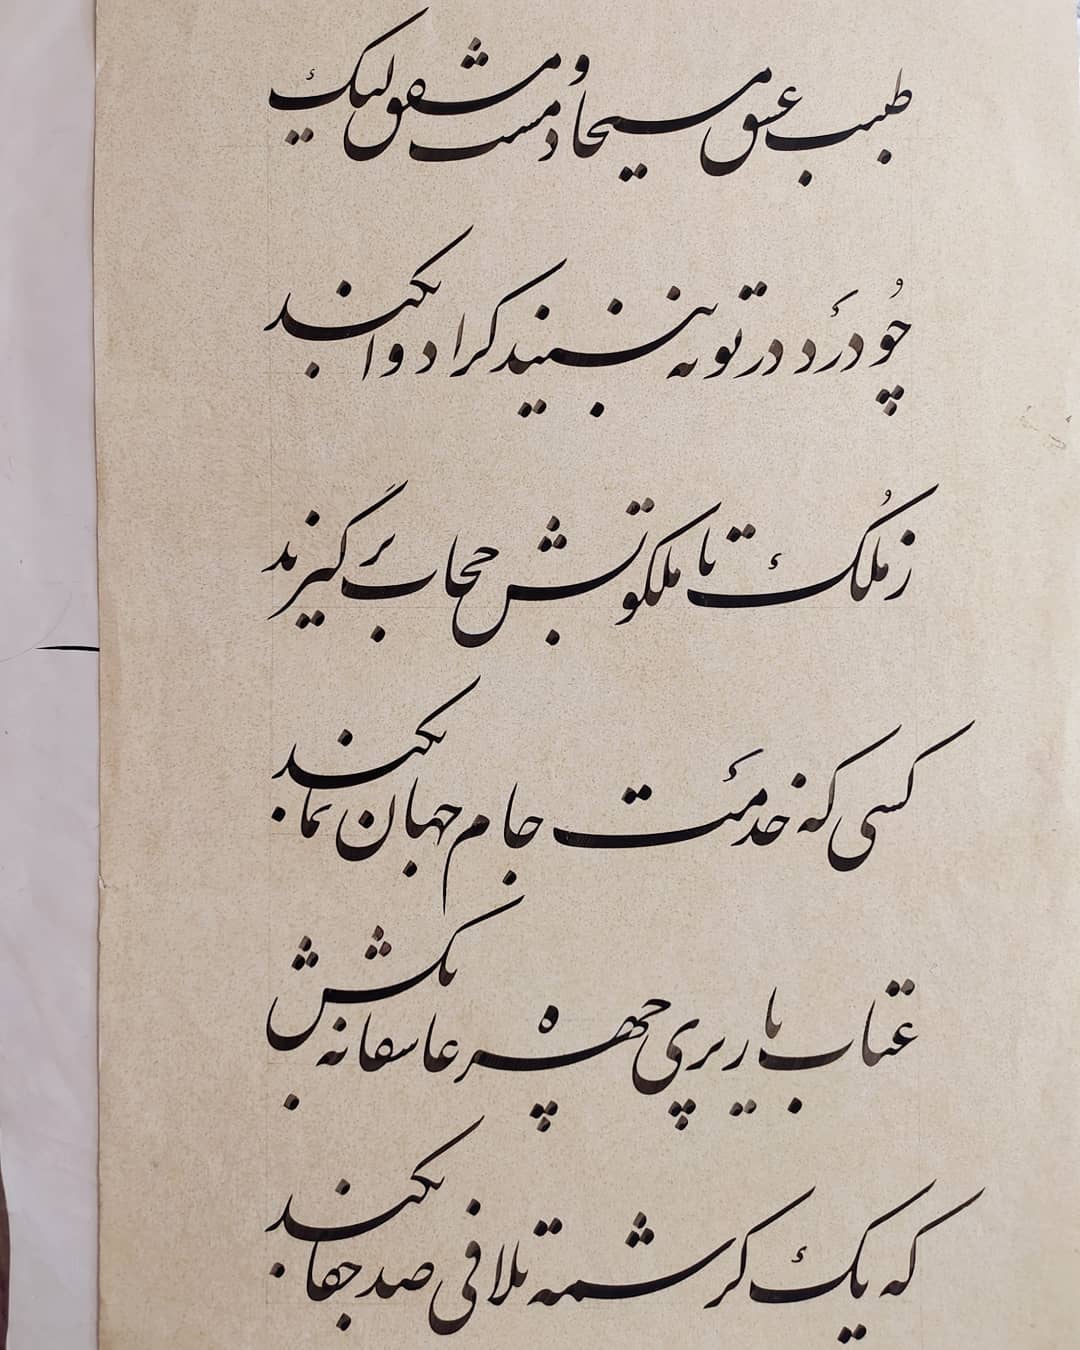 طبیب عشق مسیحا دمست و مشفق لیک
چو درد در تو نبیند کرا دوا بکند
ز ملک تا ملکوتش حجاب برگیرند
کسی که خدمت جام جهان نما بکند
عتاب یار پری چهره عاشقانه بکش
که یک کرشمه تلافی صد جفا بکند